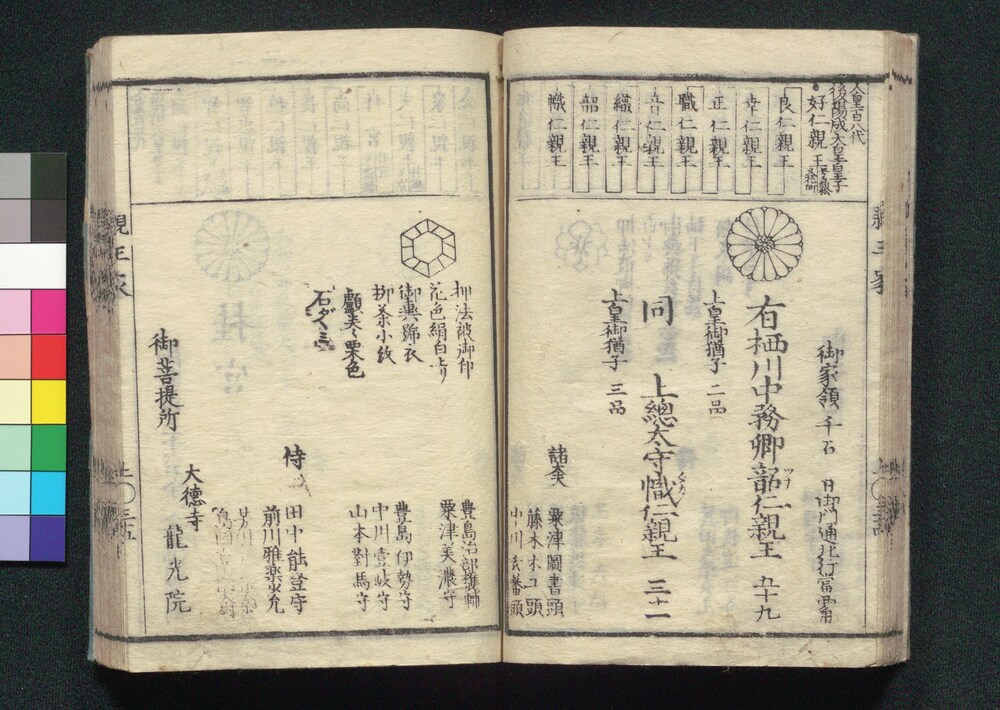 親王家
人皇百八代
後陽成天皇皇子
好仁親王
良仁親王
幸仁親王
正仁親王
職仁親王
織仁親王
韶仁親王
幟仁親王
御家領 千石
日御門通北行當
有栖川中務卿韶仁親王 五十九
ツナ
上皇御猶子 二品
同 上總太守幟仁親王 三十一
タカ
上皇御猶子 三品
諸太夫
粟津圖書頭
藤木木工頭
中川玄蕃頭
押法被御印
花色絹白上り
御輿舁衣
柳茶小紋
石ダヽミ
豊島治部權輔
粟津美濃守
豊島伊勢守
中川壹岐守
山本對馬守
侍
田中能登守
前川雅樂少允
御菩提所
大徳寺
龍光院
親王家